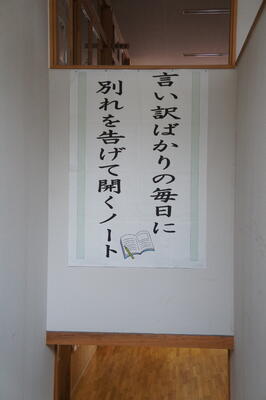 言い訳ばかりの毎日に
別れを告げて開くノート